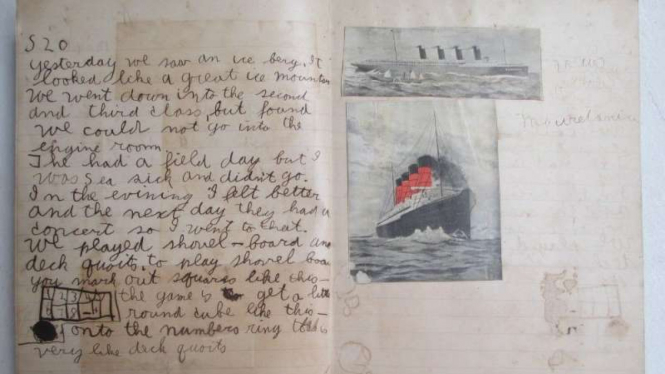 S 20
Yesterday we saw an ice berg. It
looked like a great ice mountain
We went down into the second
and third class, but found
we could not go into the
engine room
The had a field day but I
was sea sick and didn't go.
In the evining I felt better
and the next day they had a
concert so I went to that.
We played shovel-board and
deck quoits. to play shovel boa
you mark out squares like this-
the game is get a litt
round cube like this-
onto the numbers ring
very like deck quoits
Mauretania